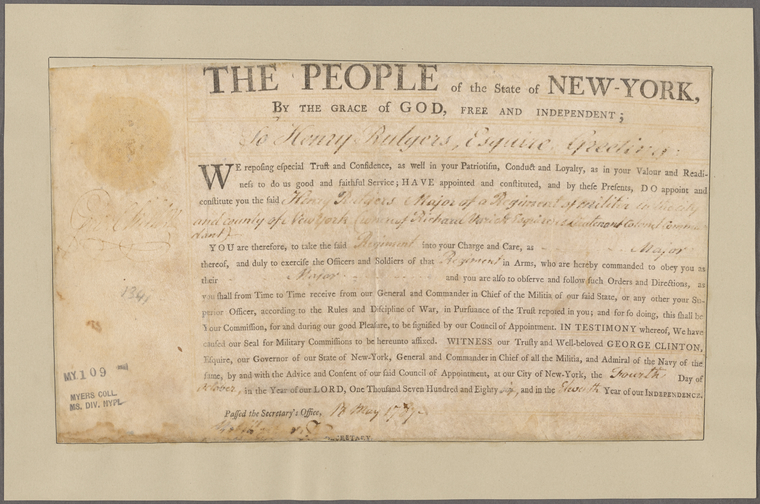 THE PEOPLE of the State of NEW-YORK,
BY THE GRACE of GOD, FREE AND INDEPENDENT;
To Henry Rutgers, Esquire, Greeting:
WE reposing especial Trust and Confidence, as well in your Patriotism, Conduct and Loyalty, as in your Valour and Readi-
ness to do us good and faithful Service; HAVE appointed and constituted, and by these Presents, DO appoint and
constitute you the said Henry Rutgers Major of a Regiment of militia in the city
and county of New York whereof Richard Varick Esquire is Lieutenant Colonel Comman-
dant;
YOU are therefore, to take the said Regiment into your Charge and Care, as Major
thereof, and duly to exercise the Officers and Soldiers of that Regiment in Arms, who are hereby commanded to obey you as
their Major and you are also to observe and follow such Orders and Directions, as
you shall from Time to Time receive from our General and Commander in Chief of the Militia of our said State, or any other your Su-
perior Officer, according to the Rules and Discipline of War, in Pursuance of the Trust reposed in you; and for so doing, this shall be
your Commission, for and during our good Pleasure, to be signified by our Council of Appointment. IN TESTIMONY whereof, We have
caused our Seal for Military Commissions to be hereunto affixed. WITNESS our Trusty and Well-beloved GEORGE CLINTON,
Esquire, our Governor of our State of New-York, General and Commander in Chief of all the Militia, and Admiral of the Navy of the
same, by and with the Advice and Consent of our said Council of Appointment, at our City of New-York, the Fourth Day of
October, in the Year of our LORD, One Thousand Seven Hundred and Eighty six, and in the Eleventh Year of our INDEPENDENCE.
Passed the Secretary's Office, 18 May 1787.
SECRETARY
MY. 109
MYERS COLL.
MS. DIV. NYPL